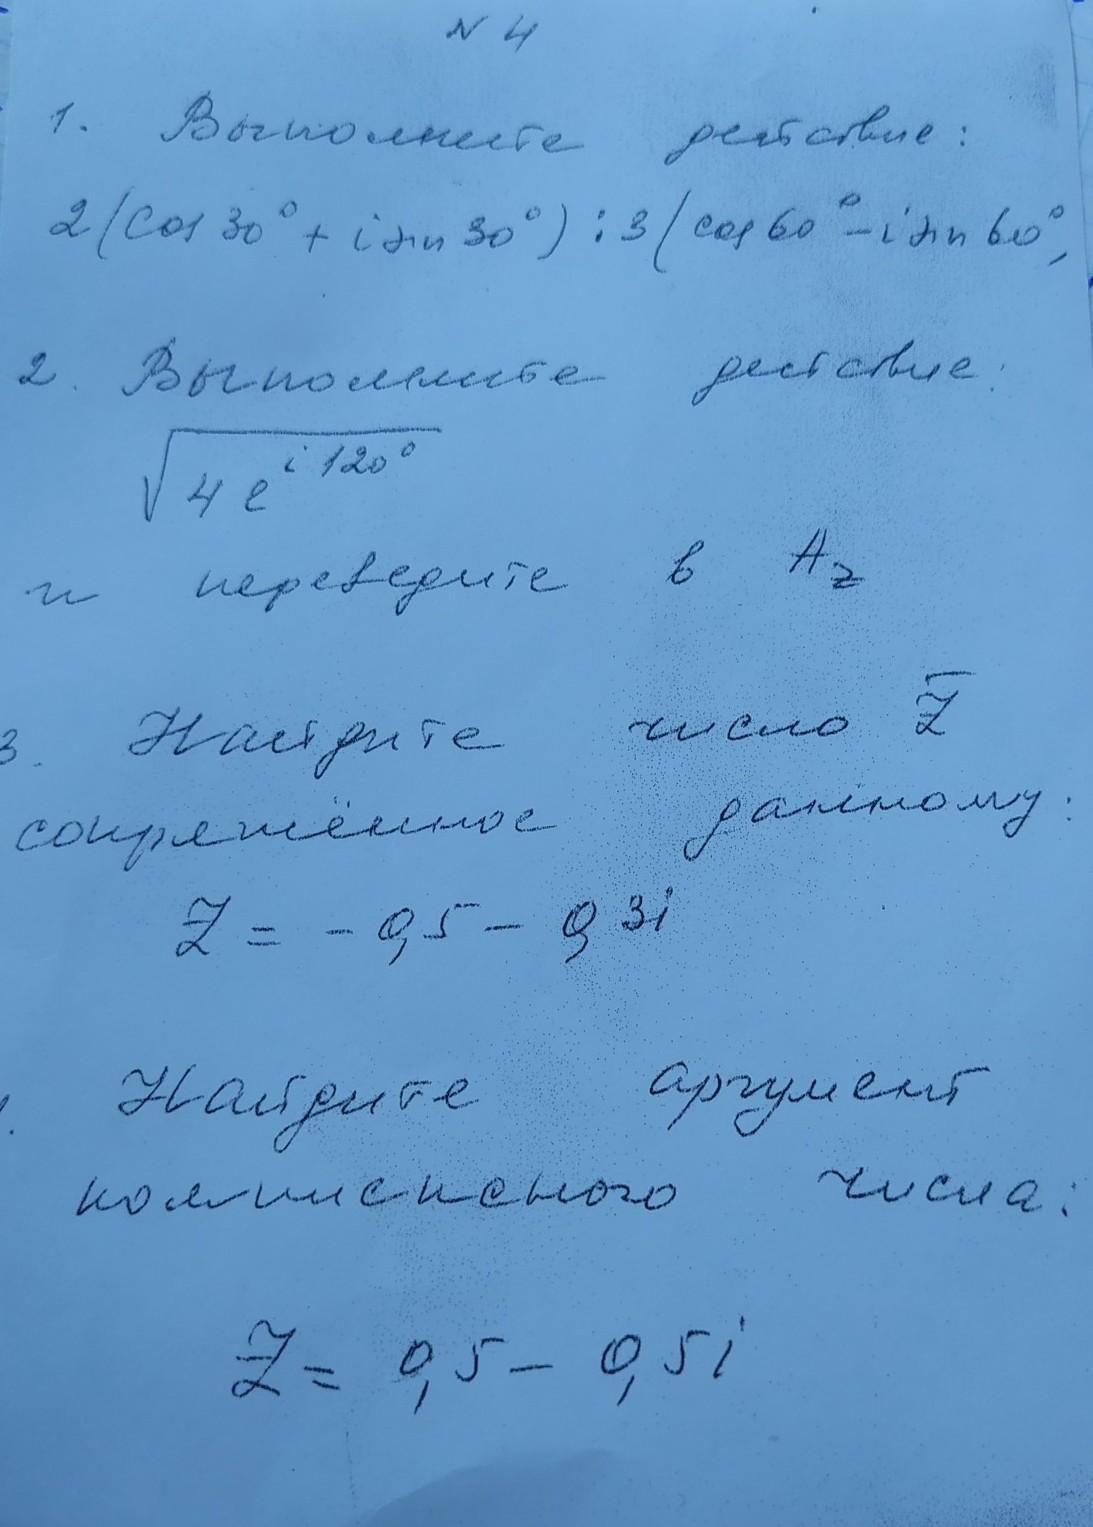 N 4
1. Выполните действие:
2(cos 30° + i sin 30°) : 3(cos 60° - i sin 60°,
2. Выполните действие:
√4e^{i 120°}
и переведите в Az
3. Найдите число z̄
сопряжённое данному:
Z = - 0,5 - 0,3i
Найдите аргумент
комплексного числа:
Z = 0,5 - 0,5i